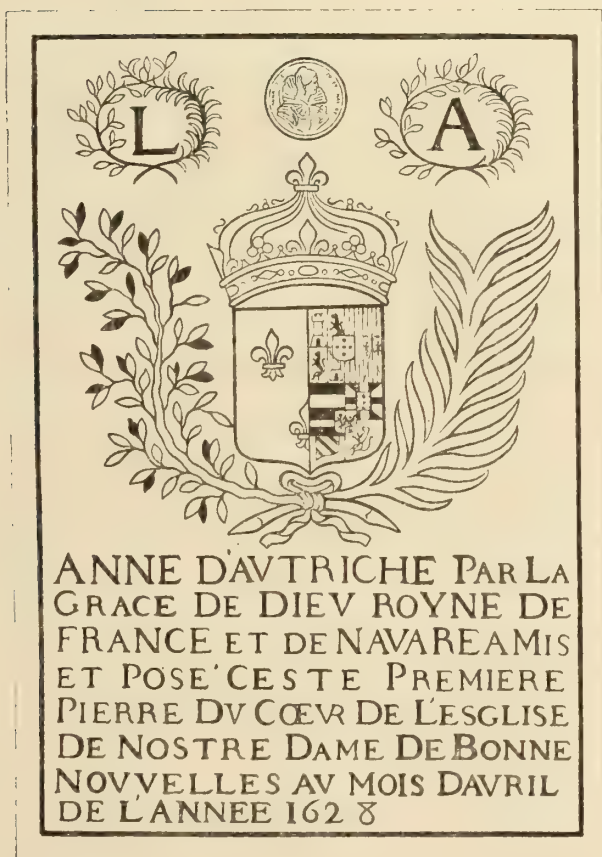 L A
ANNE D'AVTRICHE PAR LA
GRACE DE DIEV ROYNE DE
FRANCE ET DE NAVARE A MIS
ET POSE' CESTE PREMIERE
PIERRE DV CŒVR DE L'ESGLISE
DE NOSTRE DAME DE BONNE
NOVVELLES AV MOIS DAVRIL
DE L'ANNEE 1628